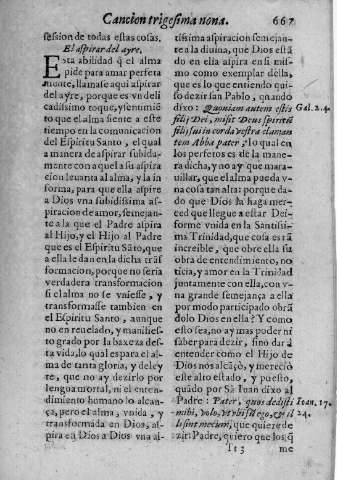 Cancion trigesima nona. 667
session de todas estas cosas.
El aspirar del ayre.
Esta abilidad q̃ el alma
pide para amar perfeta
mente, llamase aqui aspirar
del ayre, porque es vn deli
cadissimo toque, y
to que el alma siente a este
tiempo en la comunicacion
del Espiritu Santo, el qual
a manera de aspirar subida-
mente con aquella su aspira
cion leuanta al alma, y la in
forma, para que ella aspire
a Dios vna subidissima as
piracion de amor, semejan-
te a la que el Padre aspira
al Hijo, y el Hijo al Padre
que es el Espiritu Sãto, que
a ella le dan en la dicha trãs
formacion, porque no seria
verdadera transformacion
si el alma no se vniesse, y
transformasse tambien en
el Espiritu Santo, aunque
no en reuelado, y manifies-
to grado por la baxeza des-
ta vida, lo qual es para el al-
ma de tanta gloria, y deley
te, que no ay dezirlo por
lengua mortal, ni el enten-
dimiento humano lo alcan-
ça, pero el alma, vnida, y
transformada en Dios, as-
pira en Dios a Dios vna as-
tissima aspiracion semejan-
te a la diuina, que Dios està
do en ella aspira en si mis-
mo como exemplar della,
que es lo que entiendo qui-
so dezir san Pablo, quando
dixo: Quoniam autem estis Gal. 2. 4.
filij Dei, misit Deus spiritũ
filij sui in corda vestra claman
tem Abba pater; lo qual en
los perfetos es de la mane-
ra dicha, y no ay que mara-
uillar, que el alma pueda v-
na cosa tan alta: porque da-
do que Dios la haga mer-
ced que llegue a estar Dei-
forme vnida en la Santissi-
ma Trinidad, que cosa es tã
increible, que obre ella su
obra de entendimiento, no
ticia, y amor en la Trinidad
juntamente con ella, con v-
na grande semejança a ella
por modo participado obrã
dolo Dios en ella? Y como
esto sea, no ay mas poder ni
saber para dezir, sino dar a
entender como el Hijo de
Dios nos alcãço, y merecio
este alto estado, y puesto,
quãdo por Sã Iuan dixo al
Padre: Pater, quos dedisti Ioan. 17.
mihi, volo, vt vbi sũ ego, & il 24.
li sint mecum, que quiere de
zir: Padre, quiero que los q̃
Tt 3 me